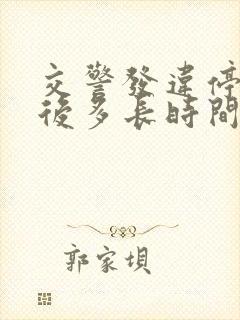 交警發違停
後多長時間
郭家埧